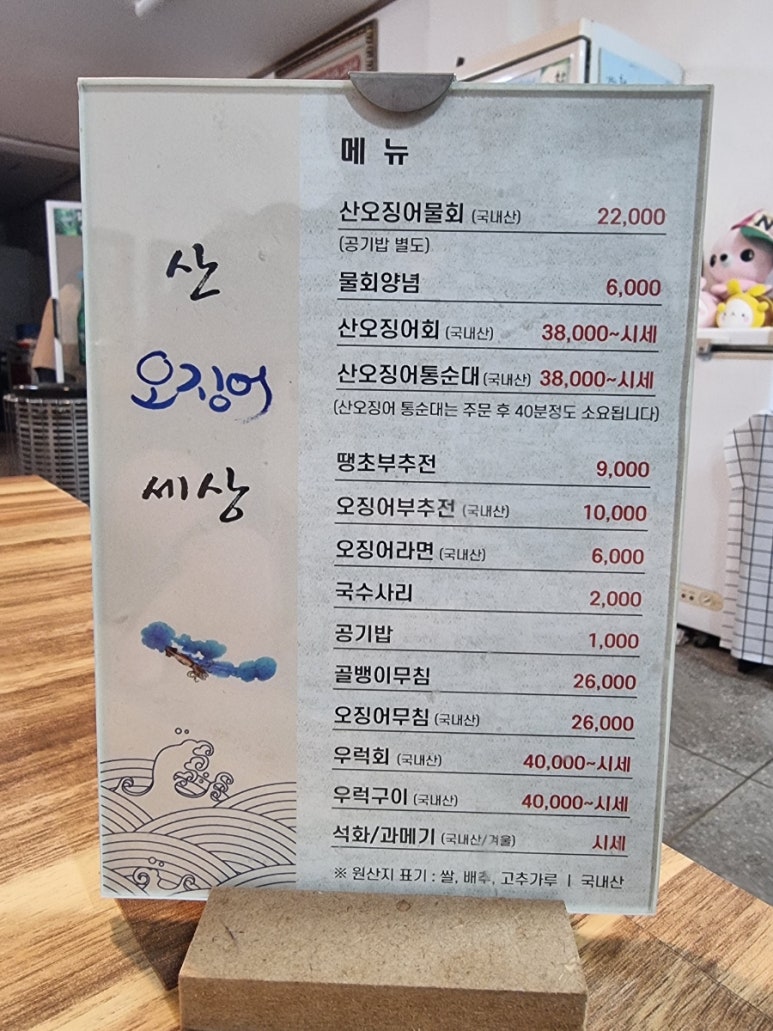 산
오징어
세상
메 뉴
산오징어물회 (국내산) 22,000
(공기밥 별도)
물회양념 6,000
산오징어회 (국내산) 38,000~시세
산오징어통순대 (국내산) 38,000~시세
(산오징어 통순대는 주문 후 40분정도 소요됩니다)
땡초부추전 9,000
오징어부추전 (국내산) 10,000
오징어라면 (국내산) 6,000
국수사리 2,000
공기밥 1,000
골뱅이무침 26,000
오징어무침 (국내산) 26,000
우럭회 (국내산) 40,000~시세
우럭구이 (국내산) 40,000~시세
석화/과메기 (국내산/겨울) 시세
※ 원산지 표기 : 쌀, 배추, 고추가루 | 국내산